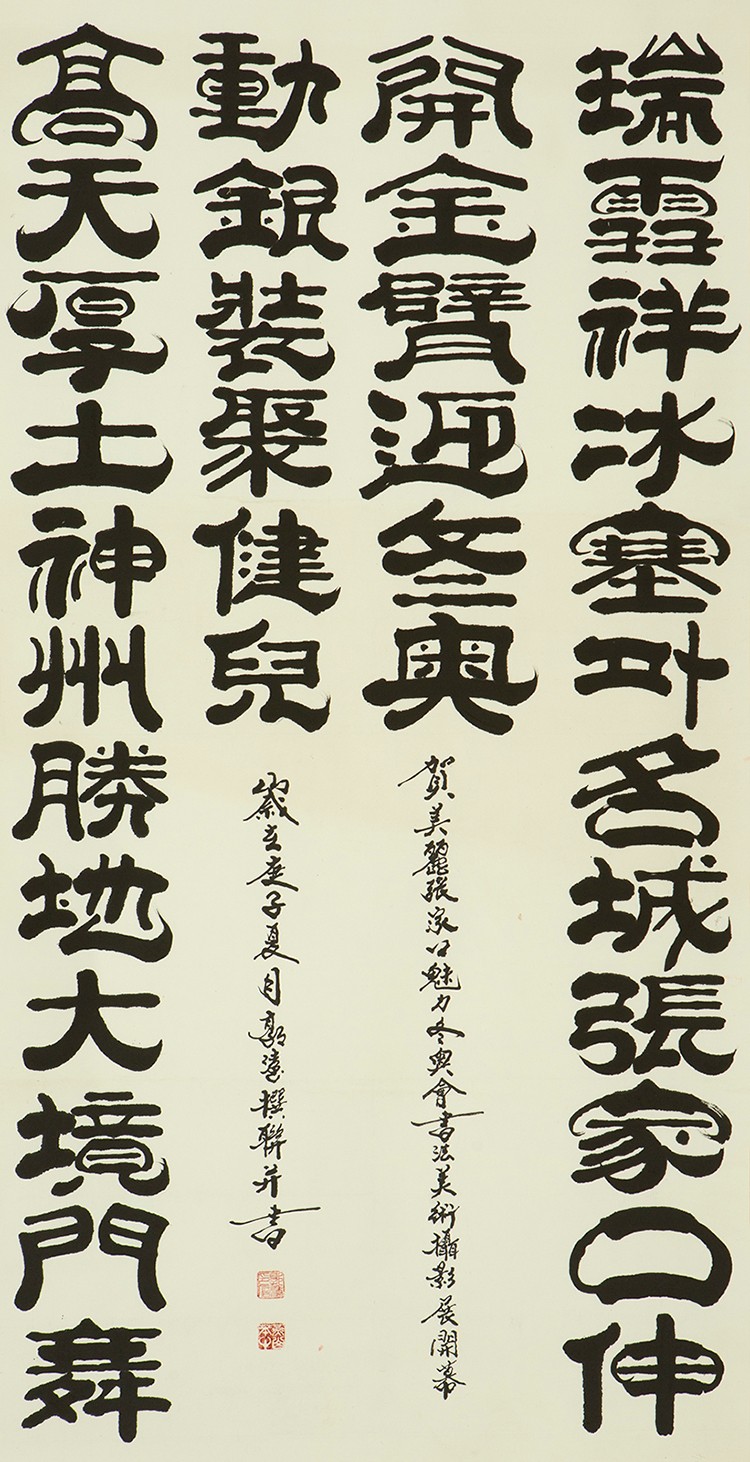 瑞雪祥冰塞外名城張家口伸
開金臂迎冬奥
賀美麗張家口魅力冬奥會書法美術攝影展開幕
高天厚土神州勝地大境門舞
動銀裝聚健兒
歲在庚子夏月郭撰聯并書